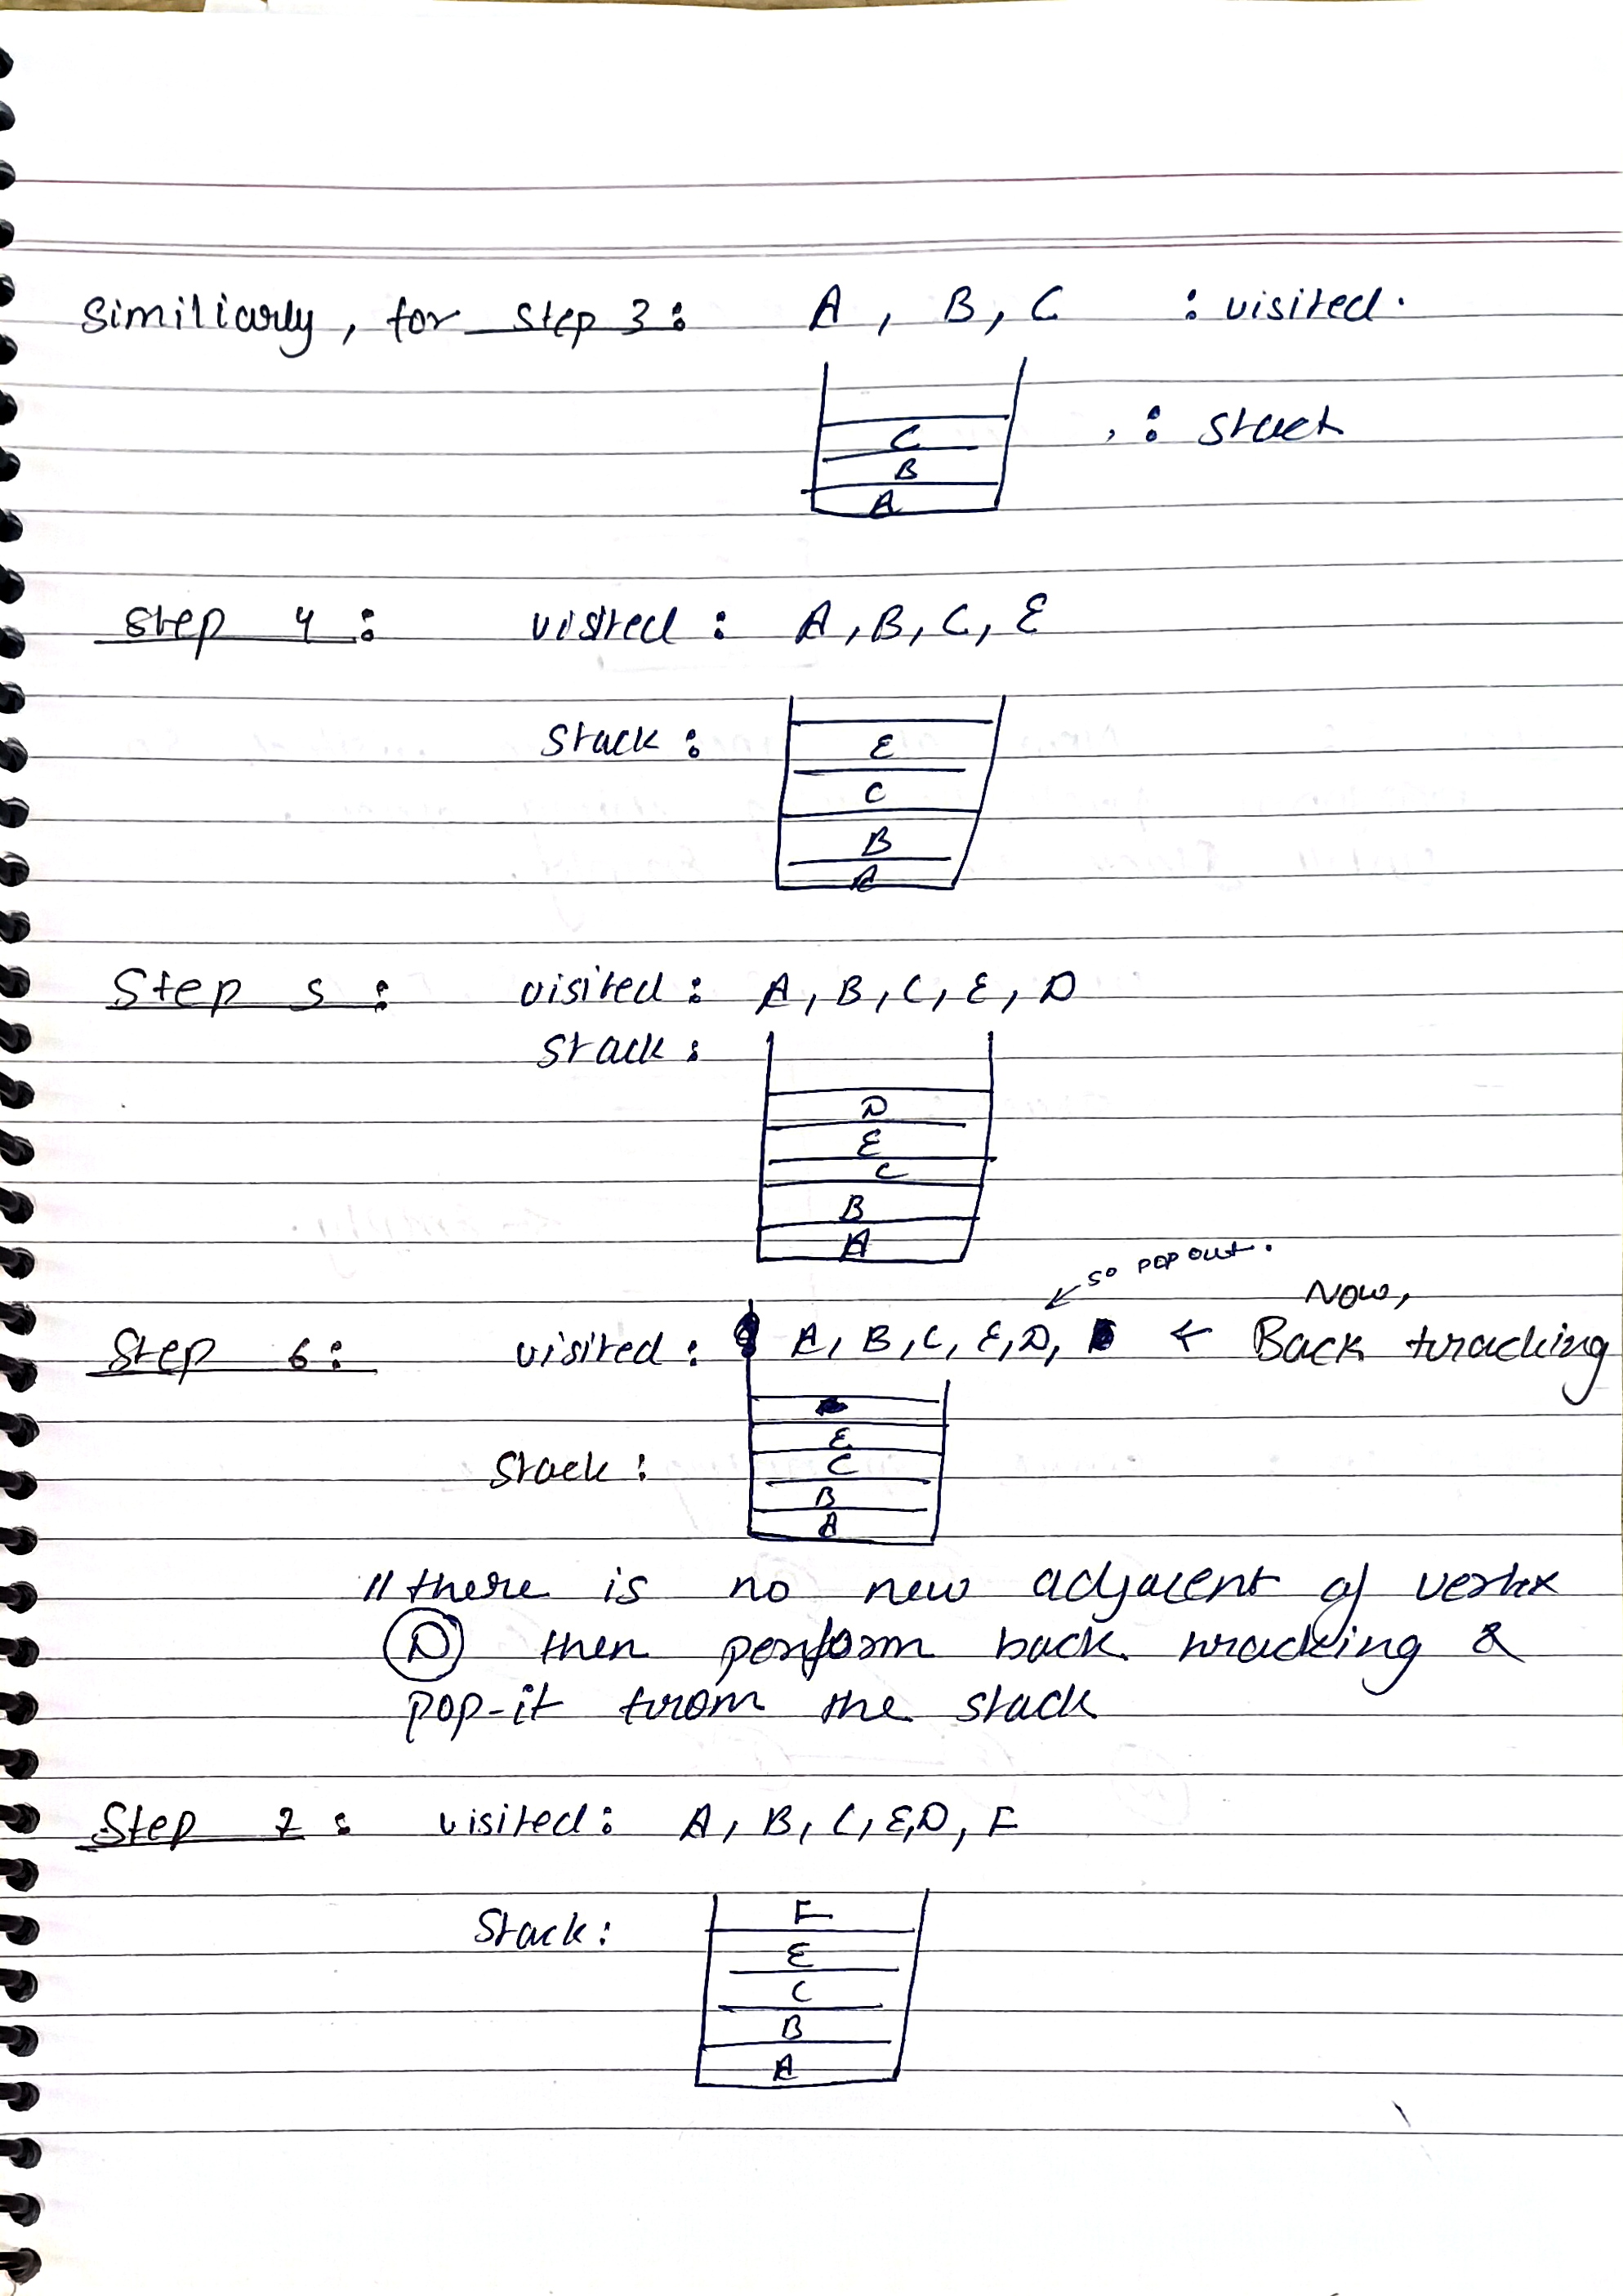 Similiarly, for Step 3: A, B, C : visited.
: stack
C
B
A
Step 4: visited: A, B, C, E
Stack:
E
C
B
A
Step 5: visited: A, B, C, E, D
Stack:
D
E
C
B
A
so pop out.
Now,
Step 6: visited: A, B, C, E, D, ← Back tracking
Stack:
E
C
B
A
// there is no new adjacent of vertex
D then perform back tracking &
pop-it from the stack
Step 7: visited: A, B, C, E, D, F
Stack:
F
E
C
B
A